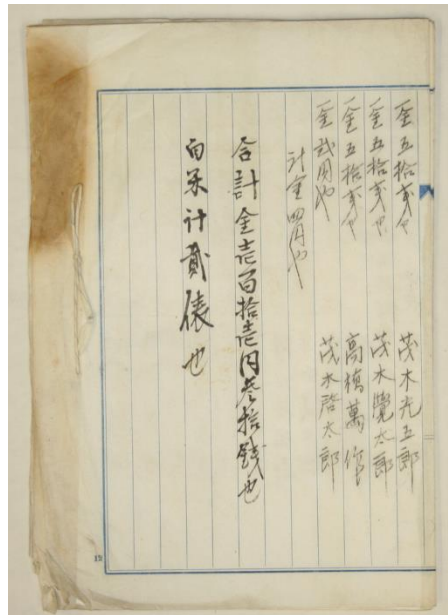 一金五拾戔也 茂木光五郎
一金五拾戔也 茂木覺太郎
一金五拾戔也 高橋萬作
一金弐円也 茂木啓太郎
計金四円也
合計金壱百拾壱円参拾銭也
白米計貳俵也
19